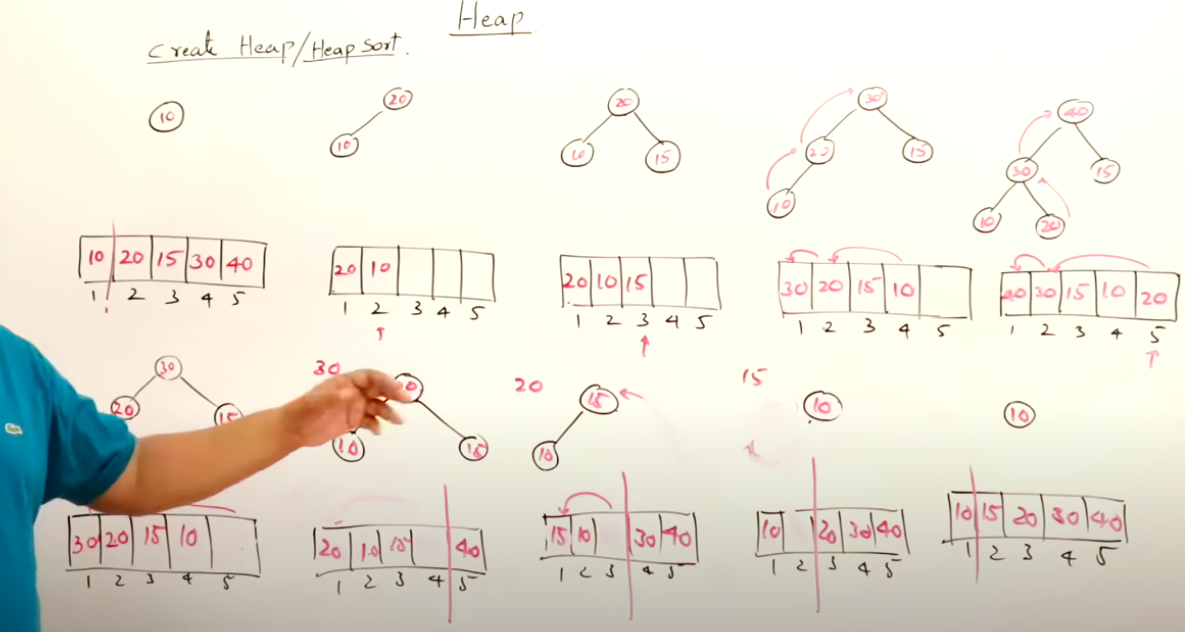 Heap
Create Heap/Heap Sort.
10
20
10
20
10 15
30
20 15
10
40
30 15
10 20
10 20 15 30 40
1 2 3 4 5
20 10
1 2 3 4 5
20 10 15
1 2 3 4 5
30 20 15 10
1 2 3 4 5
40 30 15 10 20
1 2 3 4 5
30
20 15
30
10 15
20
15
10
15
10
10
30 20 15 10
1 2 3 4 5
20 10 15 40
1 2 3 4 5
15 10 30 40
1 2 3 4 5
10 20 30 40
1 2 3 4 5
10 15 20 30 40
1 2 3 4 5